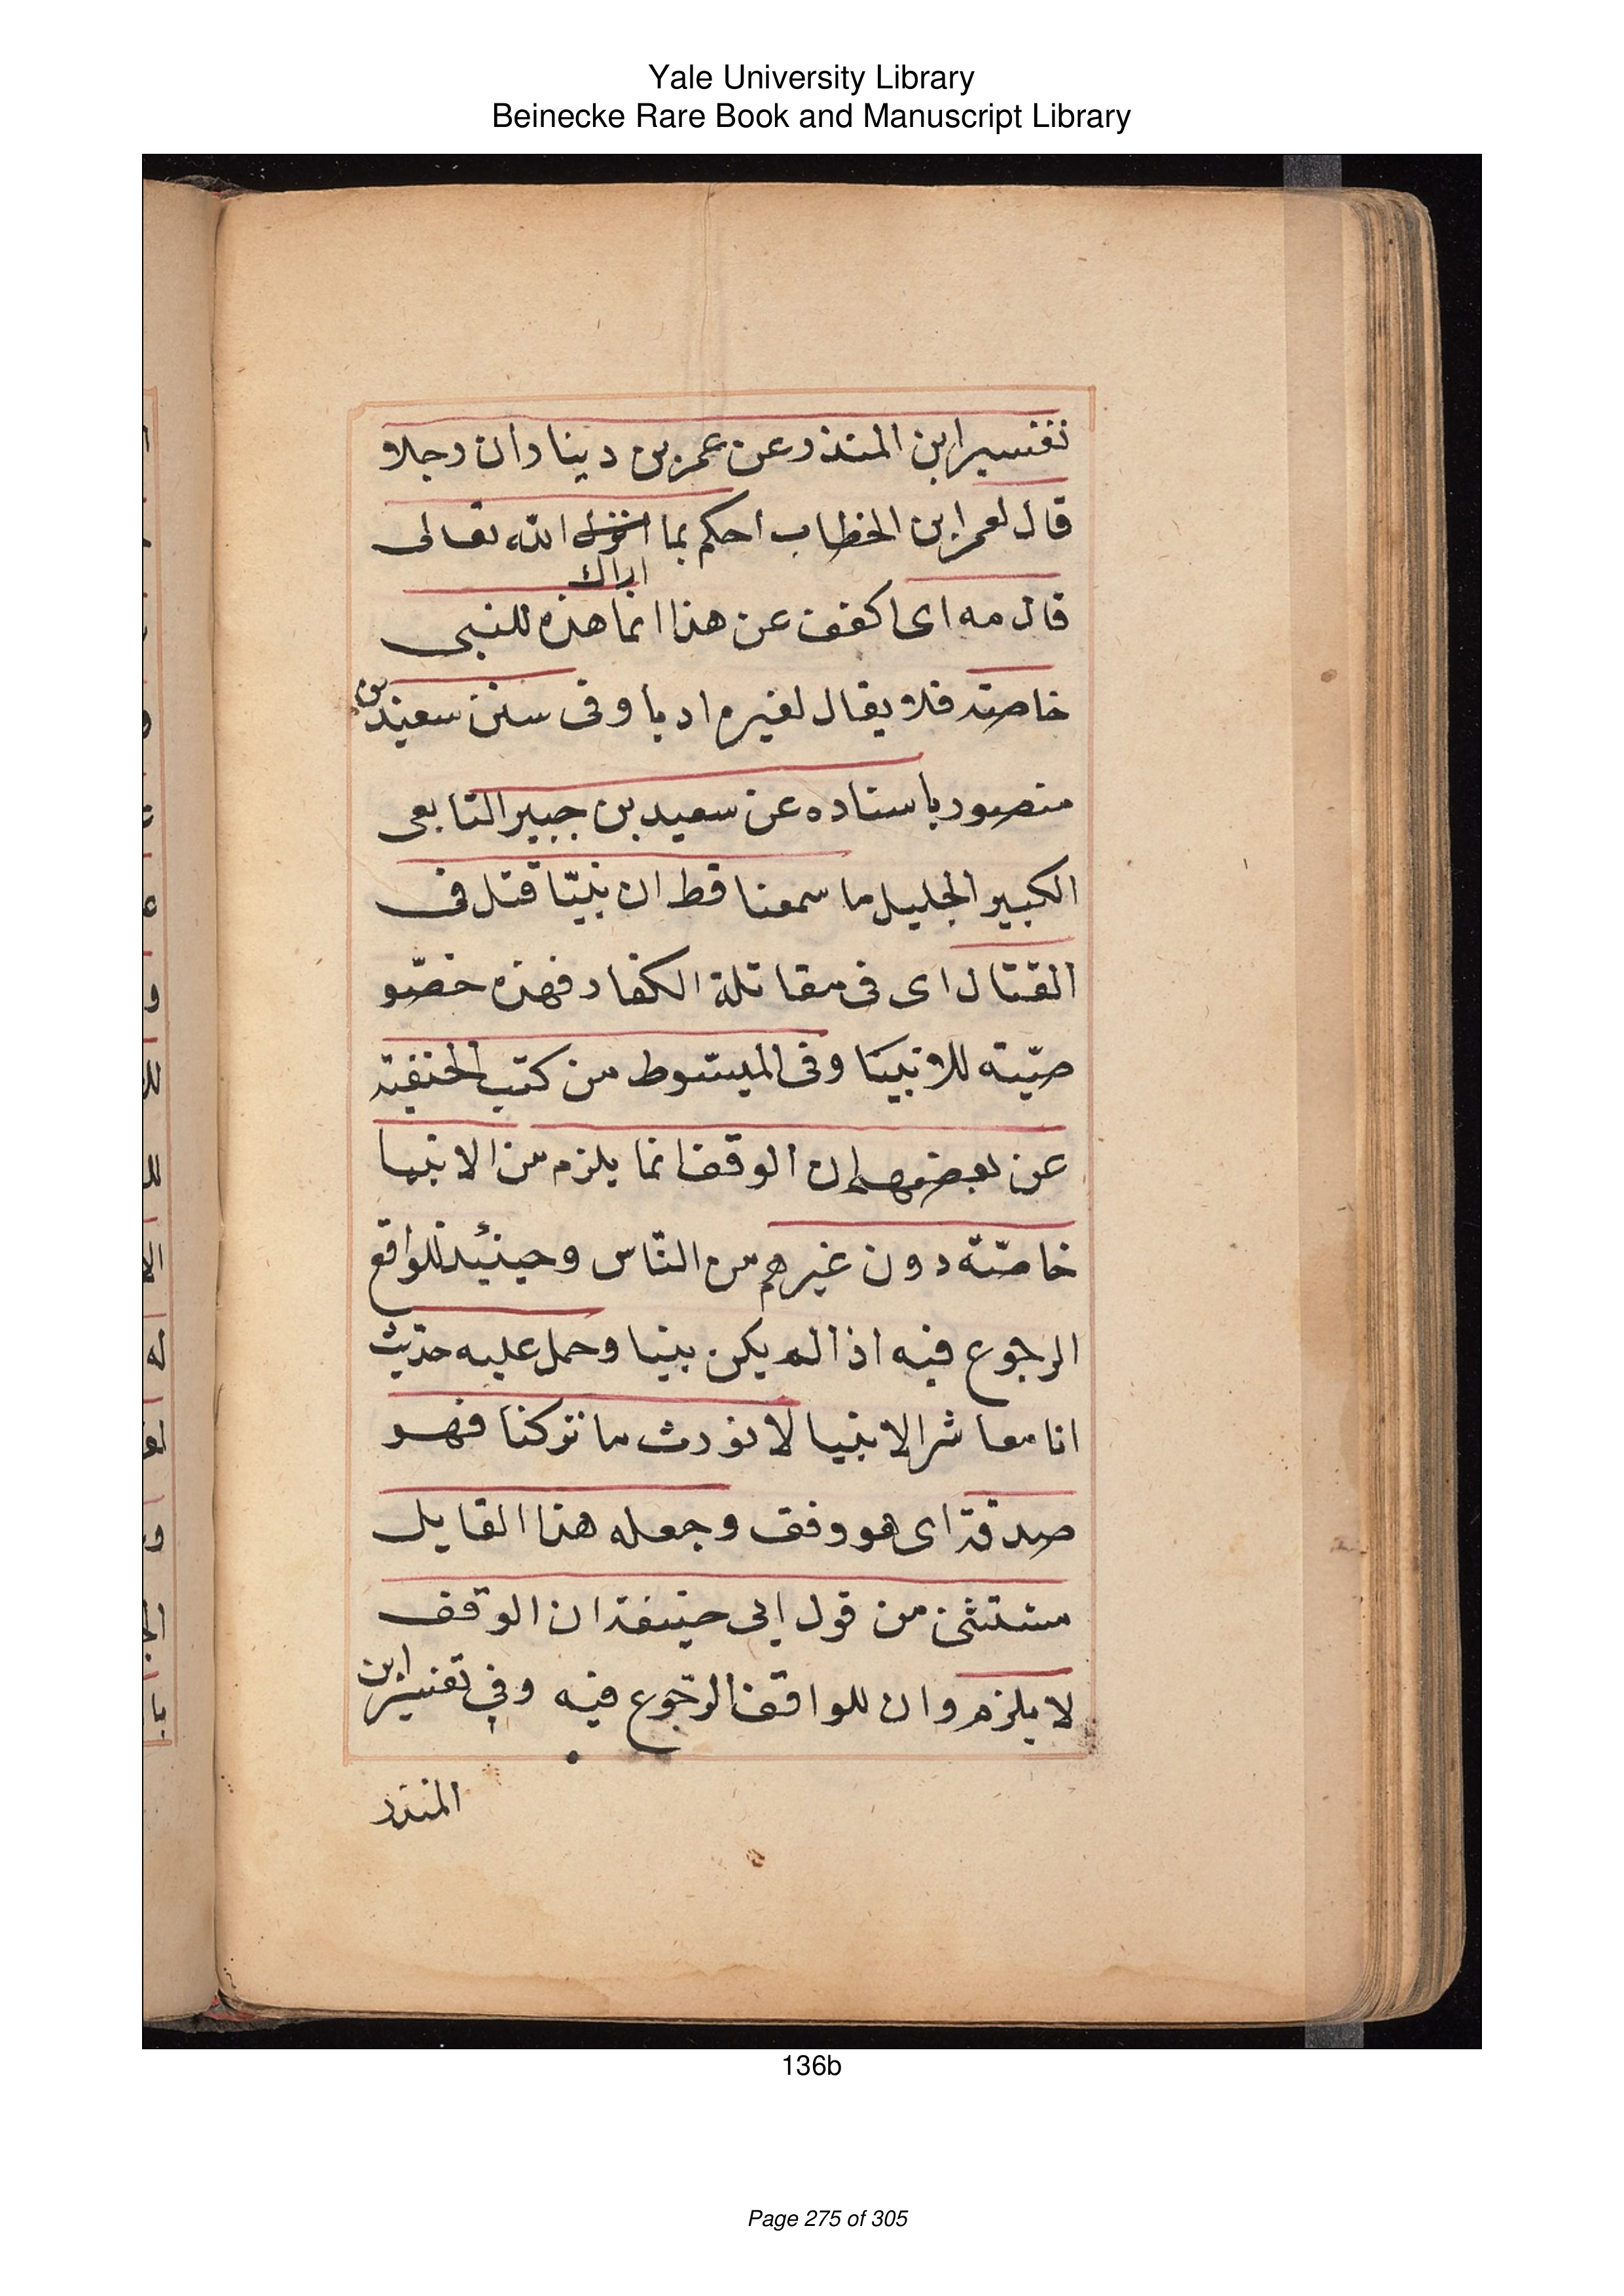 Yale University Library
Beinecke Rare Book and Manuscript Library
تفسير ابن المنذر عن عمر بن دينار ان رجلا
قال لعمر ابن الخطاب احكم بما انزل الله تعالى
اراك
قال مه اى اكفف عن هذا انما هذه للنبى
خاصته فلا يقال لغيره ادبا وفى سنن سعيد بن
منصور باسناده عن سعيد بن جبير التابعى
الكبير الجليل ما سمعنا قط ان نبيّا قتل فى
القتال اى فى مقاتلة الكفار فهذه خصّو
صيّته للانبيا وفى المبسوط من كتب الحنفيته
عن بعضهم ان الوقف انما يلزم من الانبيا
خاصّته دون غيرهم من النّاس وحينئيد للواقع
الرجوع فيه اذا لم يكن نبيا وحمل عليه حديث
انا معاشر الانبيا لا نورث ما تركنا فهو
صدقة اى هو وقف وجعله هذا القايل
مستثنى من قول ابى حنيفة ان الوقف
لا يلزم وان للواقف الرّجوع فيه وفي تفسير ابن
المنذر
136b
Page 275 of 305